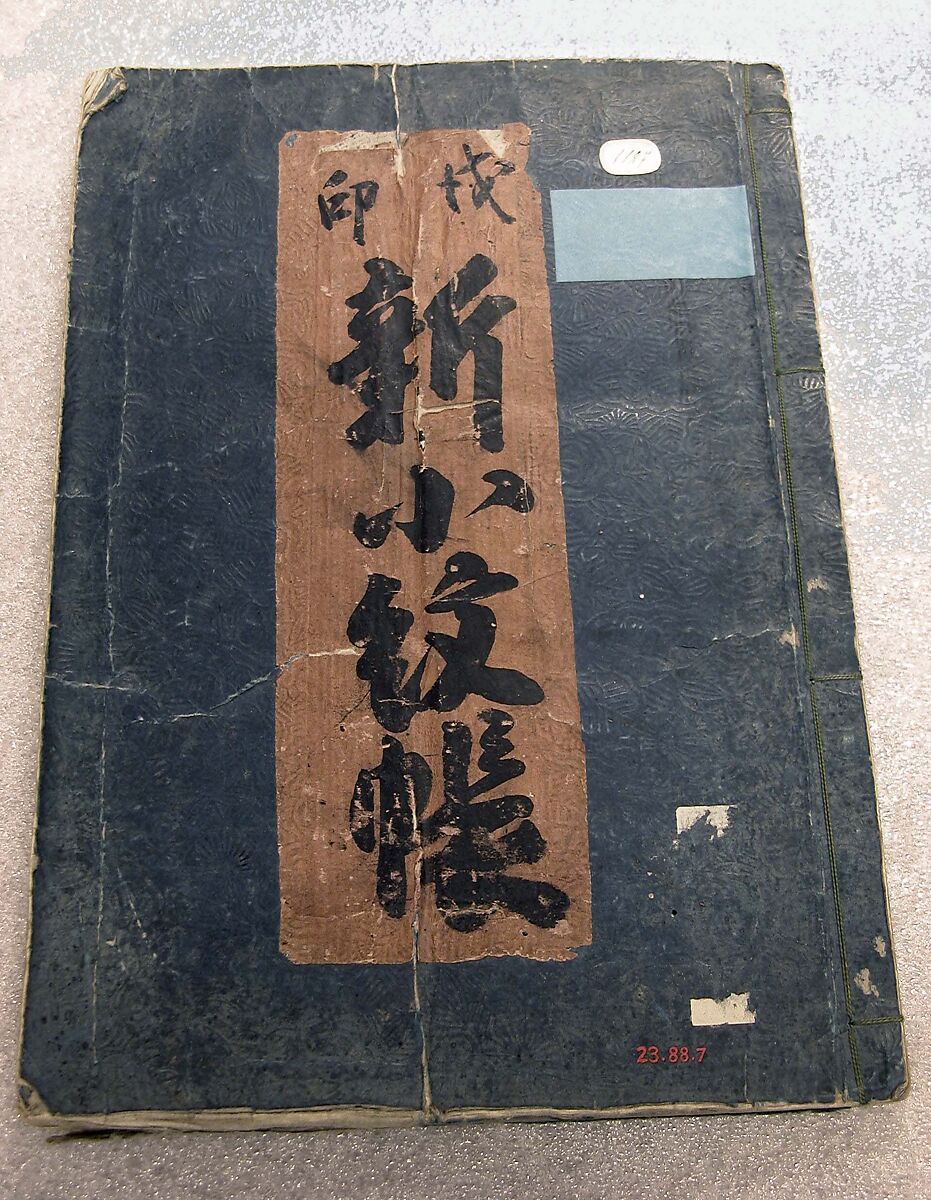 戌印
新小紋帳
23.88.7